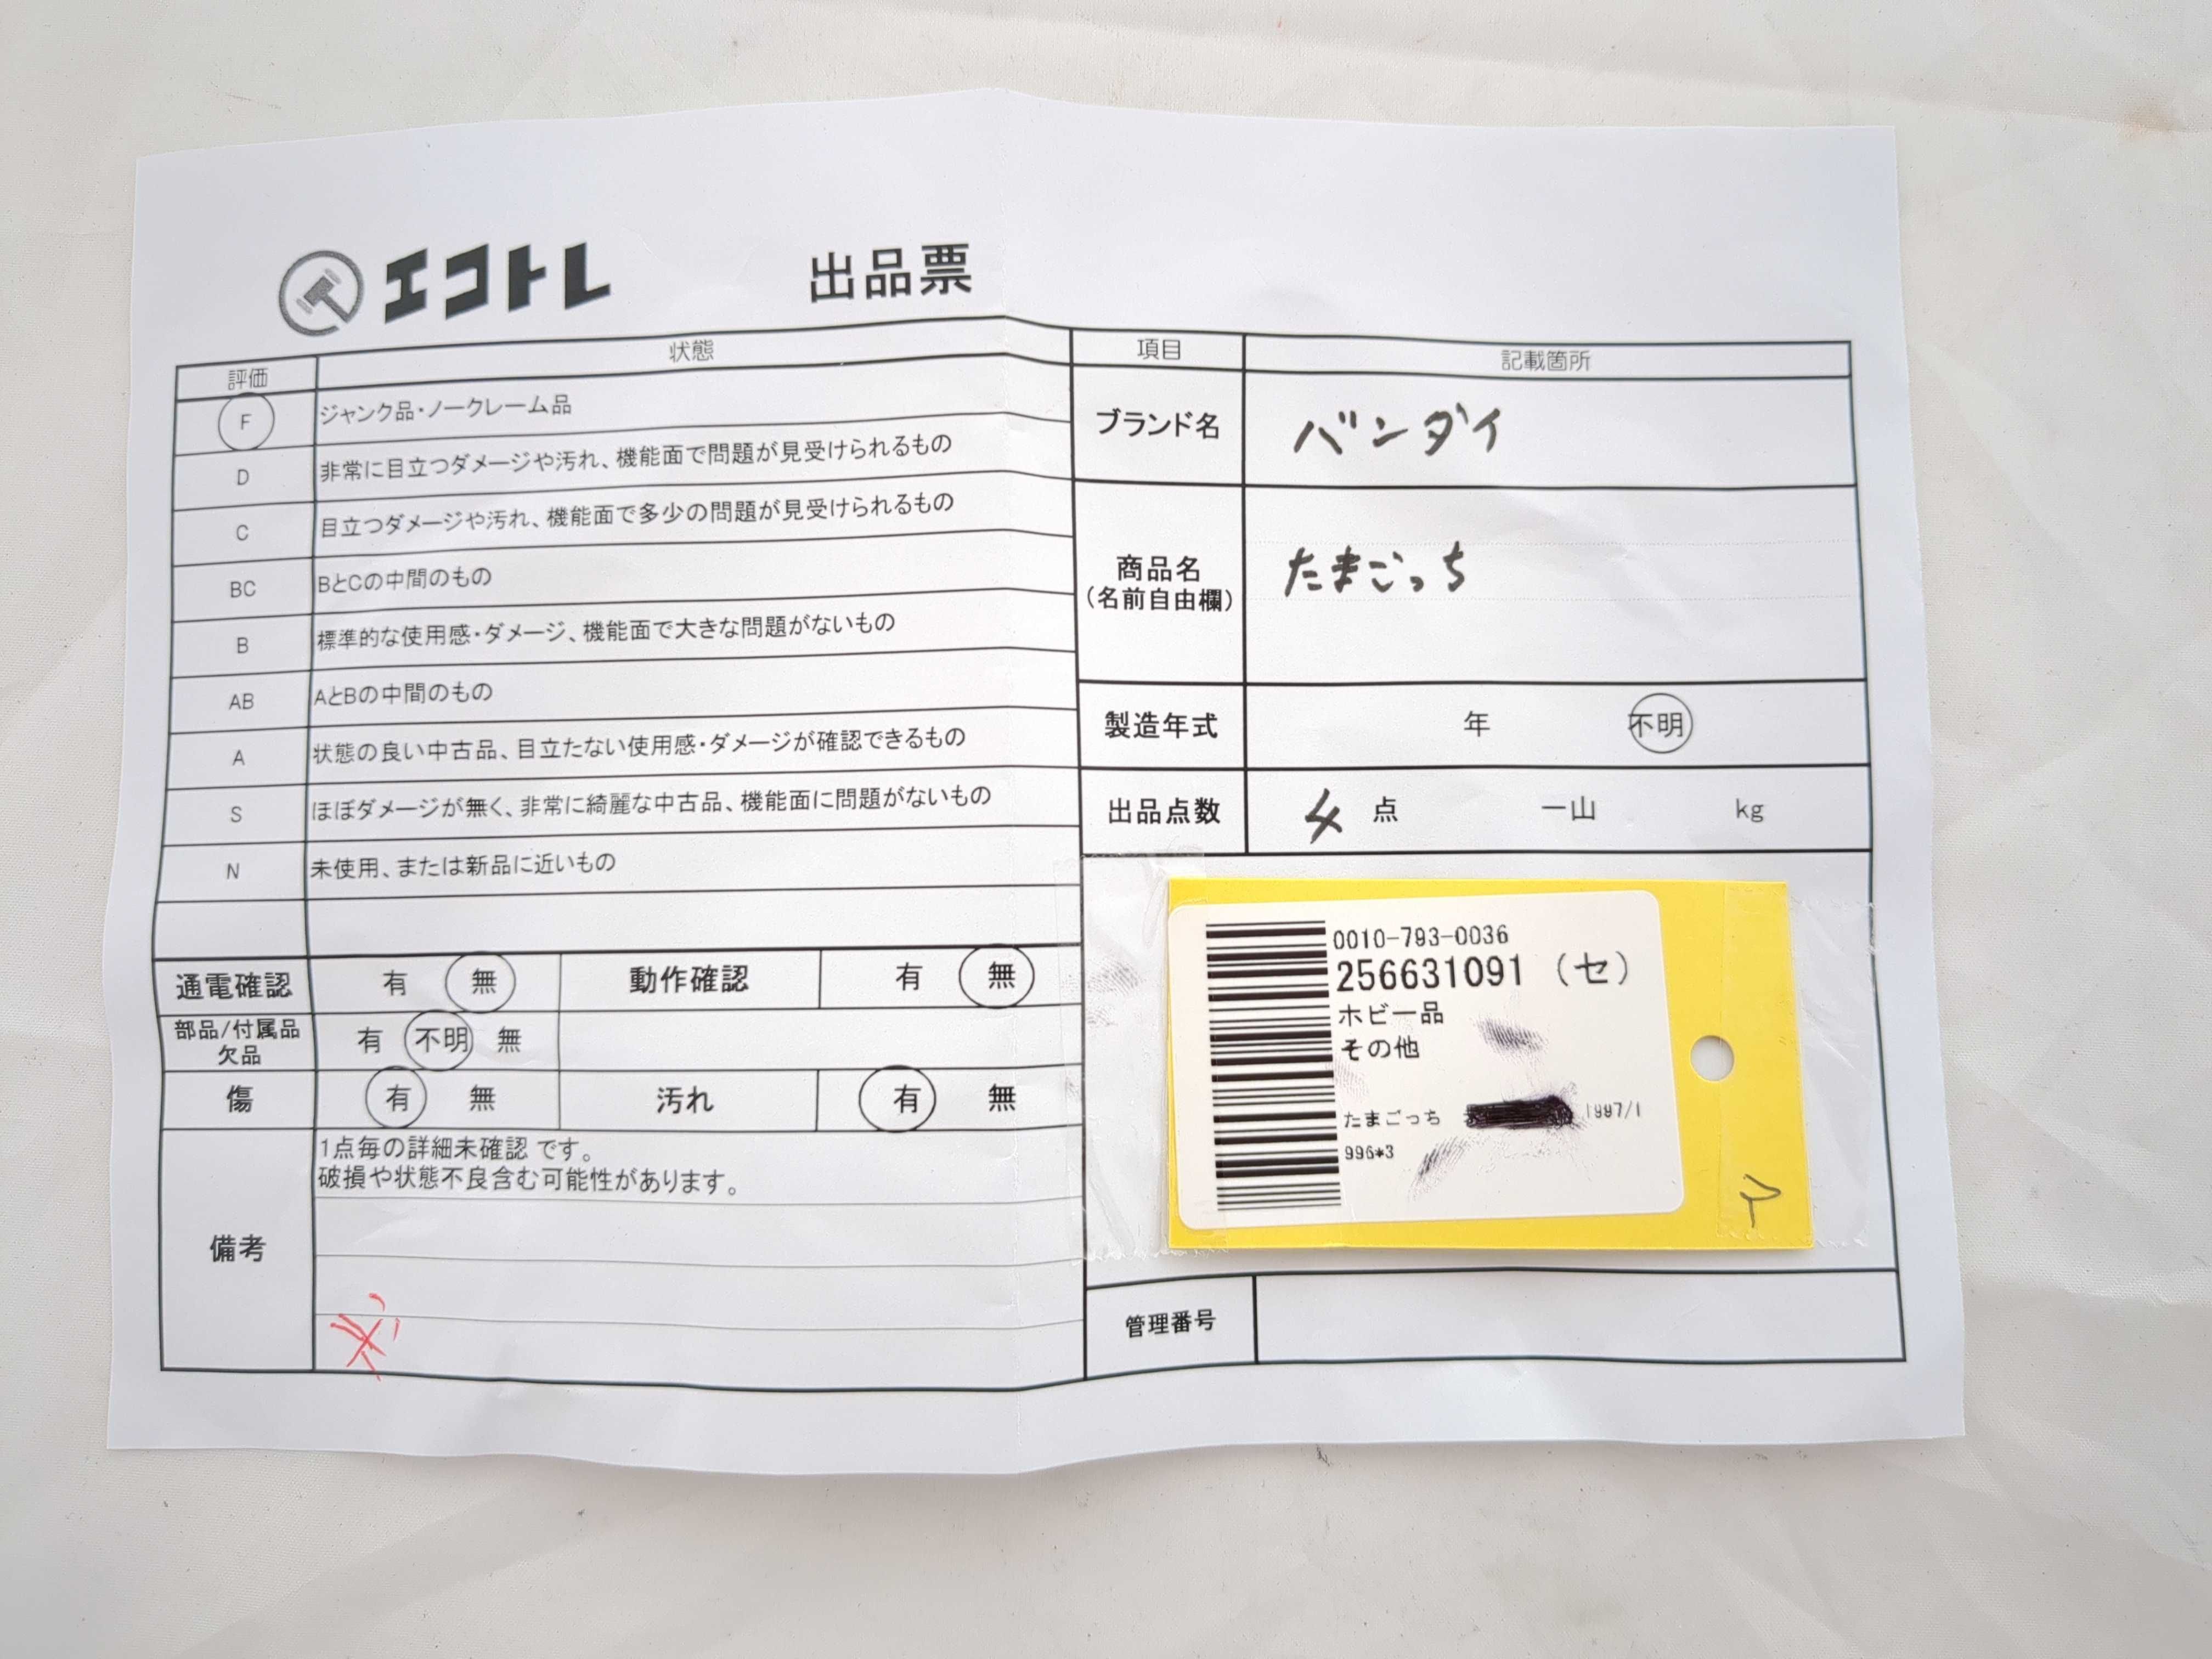 エコトレ 出品票
評価 状態
F ジャンク品・ノークレーム品
D 非常に目立つダメージや汚れ、機能面で問題が見受けられるもの
C 目立つダメージや汚れ、機能面で多少の問題が見受けられるもの
BC BとCの中間のもの
B 標準的な使用感・ダメージ、機能面で大きな問題がないもの
AB AとBの中間のもの
A 状態の良い中古品、目立たない使用感・ダメージが確認できるもの
S ほぼダメージが無く、非常に綺麗な中古品、機能面に問題がないもの
N 未使用、または新品に近いもの
通電確認 有 無 動作確認 有 無
部品/付属品 欠品 有 不明 無
傷 有 無 汚れ 有 無
備考
1点毎の詳細未確認 です。
破損や状態不良含む可能性があります。
項目 記載箇所
ブランド名 バンダイ
商品名
(名前自由欄)
たまごっち
製造年式 年 不明
出品点数 4 点 一山 kg
0010-793-0036
256631091 (セ)
ホビー品
その他
たまごっち 1997/1
996*3
管理番号